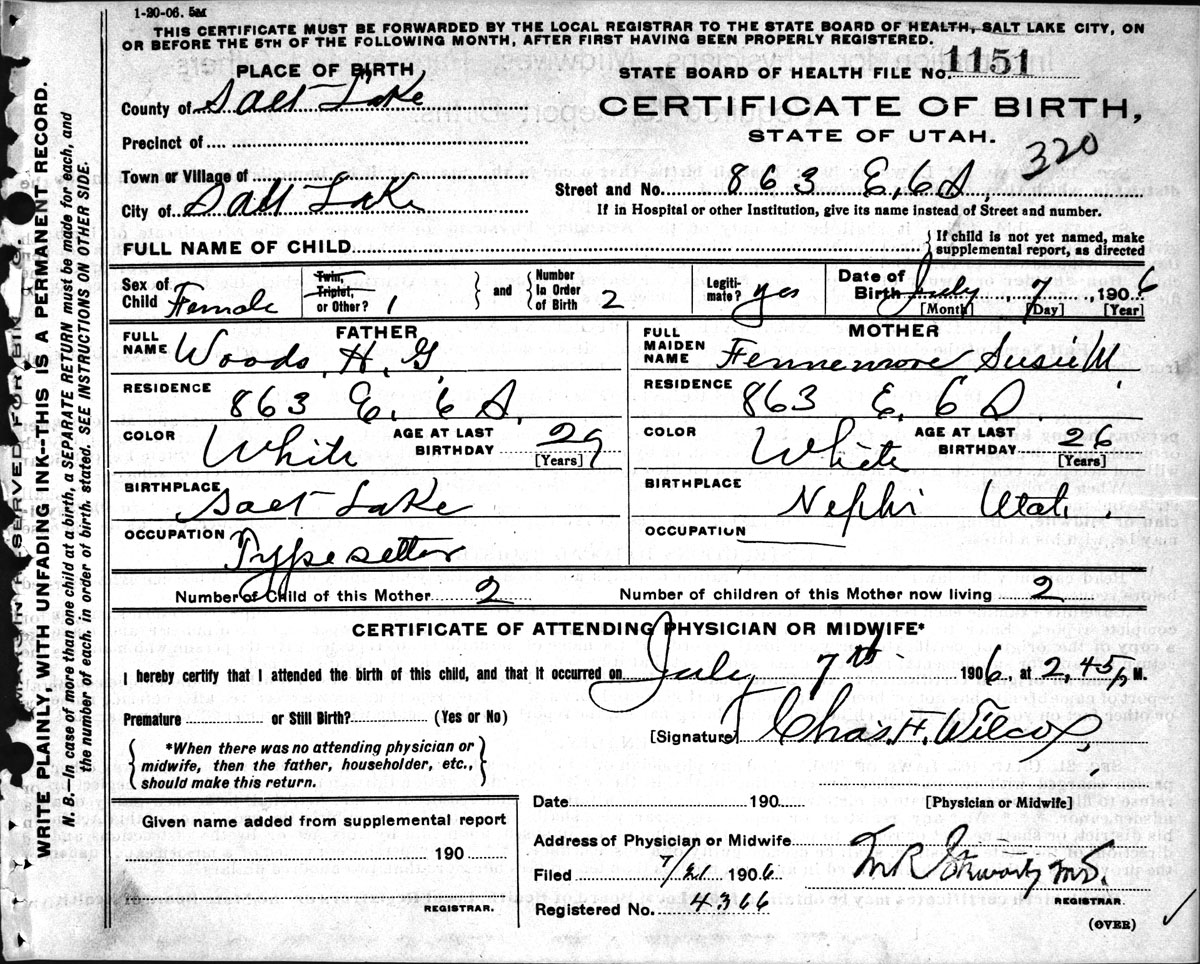 1-20-06. 5M
THIS CERTIFICATE MUST BE FORWARDED BY THE LOCAL REGISTRAR TO THE STATE BOARD OF HEALTH, SALT LAKE CITY, ON
OR BEFORE THE 5TH OF THE FOLLOWING MONTH, AFTER FIRST HAVING BEEN PROPERLY REGISTERED.
PLACE OF BIRTH
STATE BOARD OF HEALTH FILE NO. 1151
County of Salt Lake
CERTIFICATE OF BIRTH,
STATE OF UTAH.
320
Precinct of
Town or Village of
City of Salt Lake
Street and No. 863 E. 6 S.
If in Hospital or other Institution, give its name instead of Street and number.
FULL NAME OF CHILD
If child is not yet named, make
supplemental report, as directed
Sex of Child Female
Twin, Triplet, or Other? 1
and
Number in Order of Birth 2
Legitimate? yes
Date of Birth July 7 1906
[Month] [Day] [Year]
FATHER
FULL NAME Woods, H. G.
MOTHER
FULL MAIDEN NAME Fennemore Susie M.
RESIDENCE 863 E. 6 S.
RESIDENCE 863 E. 6 S
COLOR White
AGE AT LAST BIRTHDAY 29 [Years]
COLOR White
AGE AT LAST BIRTHDAY 26 [Years]
BIRTHPLACE Salt Lake
BIRTHPLACE Nephi Utah
OCCUPATION Typesetter
OCCUPATION
Number of Child of this Mother 2
Number of children of this Mother now living 2
CERTIFICATE OF ATTENDING PHYSICIAN OR MIDWIFE*
I hereby certify that I attended the birth of this child, and that it occurred on July 7th 1906, at 2,45 P M.
Premature or Still Birth? (Yes or No)
[Signature] Chas. F. Wilcox,
*When there was no attending physician or
midwife, then the father, householder, etc.,
should make this return.
Date 190
[Physician or Midwife]
Given name added from supplemental report
190
REGISTRAR.
Address of Physician or Midwife
Filed 7/21 1906
REGISTRAR.
Registered No. 4366
(OVER)
MARGIN RESERVED FOR BINDING
WRITE PLAINLY, WITH UNFADING INK--THIS IS A PERMANENT RECORD.
N. B. In case of more than one child at a birth, a SEPARATE RETURN must be made for each, and
the number of each, in order of birth, stated. SEE INSTRUCTIONS ON OTHER SIDE.